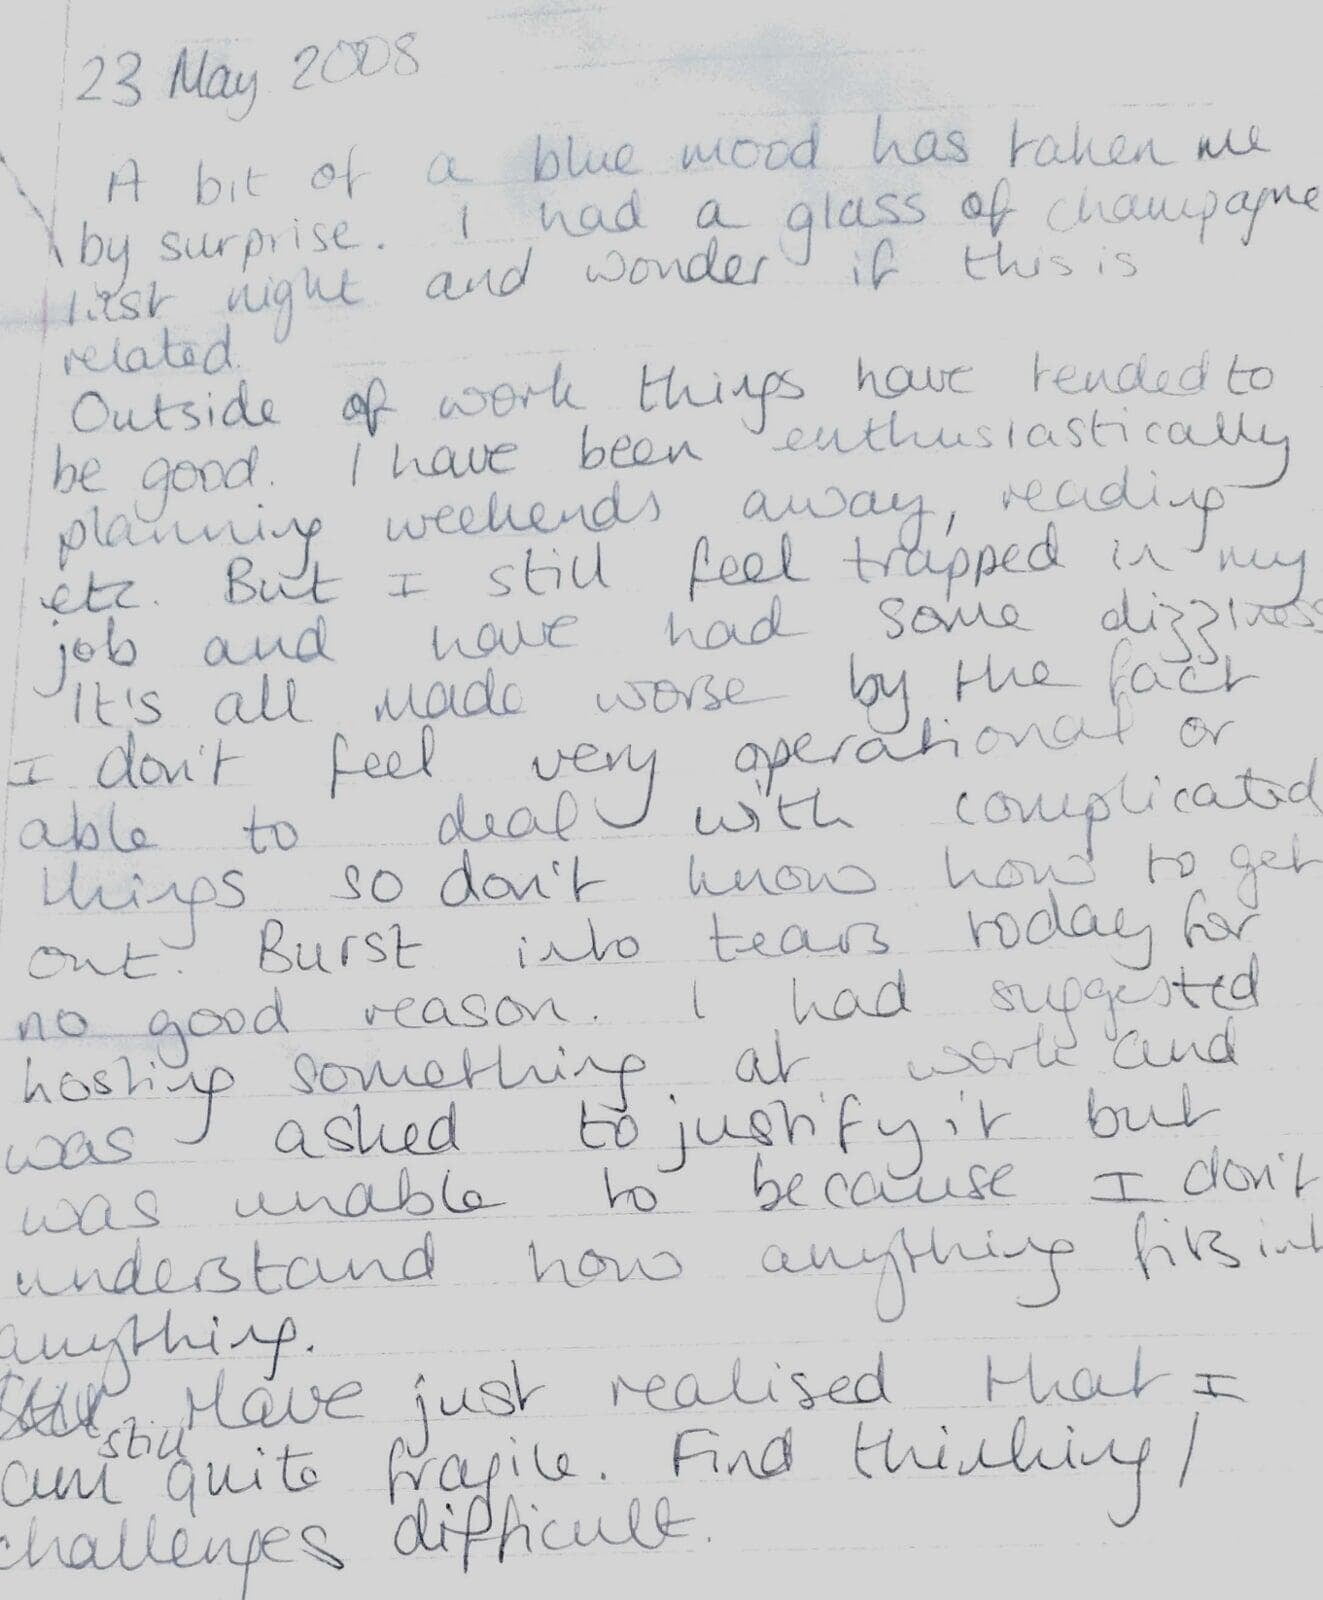 23 May 2008
A bit of a blue mood has taken me
by surprise. I had a glass of champagne
last night and wonder if this is
related.
Outside of work things have tended to
be good. I have been enthusiastically
planning weekends away, reading
etc. But I still feel trapped in my
job and have had some dizziness
It's all made worse by the fact
I don't feel very operational or
able to deal with complicated
things so don't know how to get
out. Burst into tears today for
no good reason. I had suggested
hosting something at work and
was asked to justify it but
was unable to because I don't
understand how anything fits int
anything.
Have just realised that I
am still quite fragile. Find thinking/
challenges difficult.